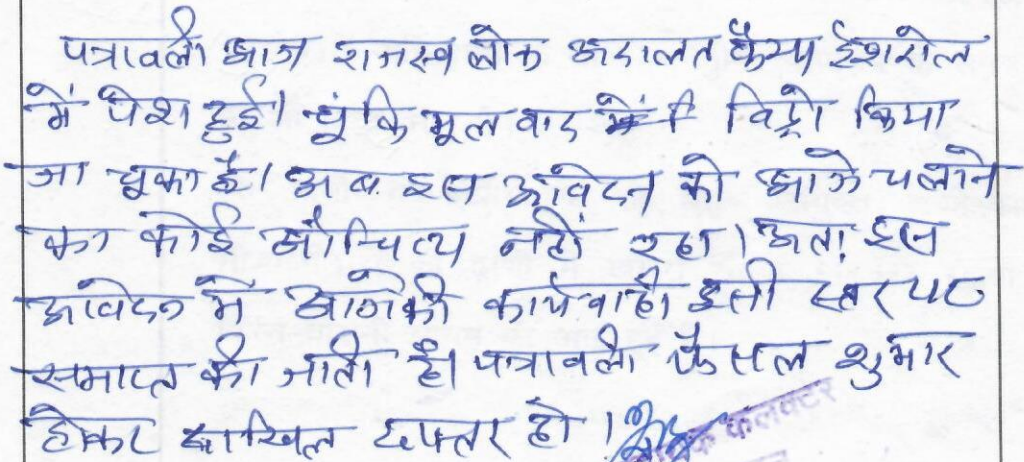 पत्रावली आज राजस्व लोक अदालत कैम्प ईशरोल
में पेश हुई। चूंकि मूल वाद ही विड्रो किया
जा चूका है। अब इस आवेदन को आगे चलाने
का कोई औचित्य नहीं रहा। अतः इस
आवेदन में आगे की कार्यवाही इसी स्तर पर
समाप्त की जाती है। पत्रावली फैसल शुमार
होकर दाखिल दफ्तर हो।
कलक्टर